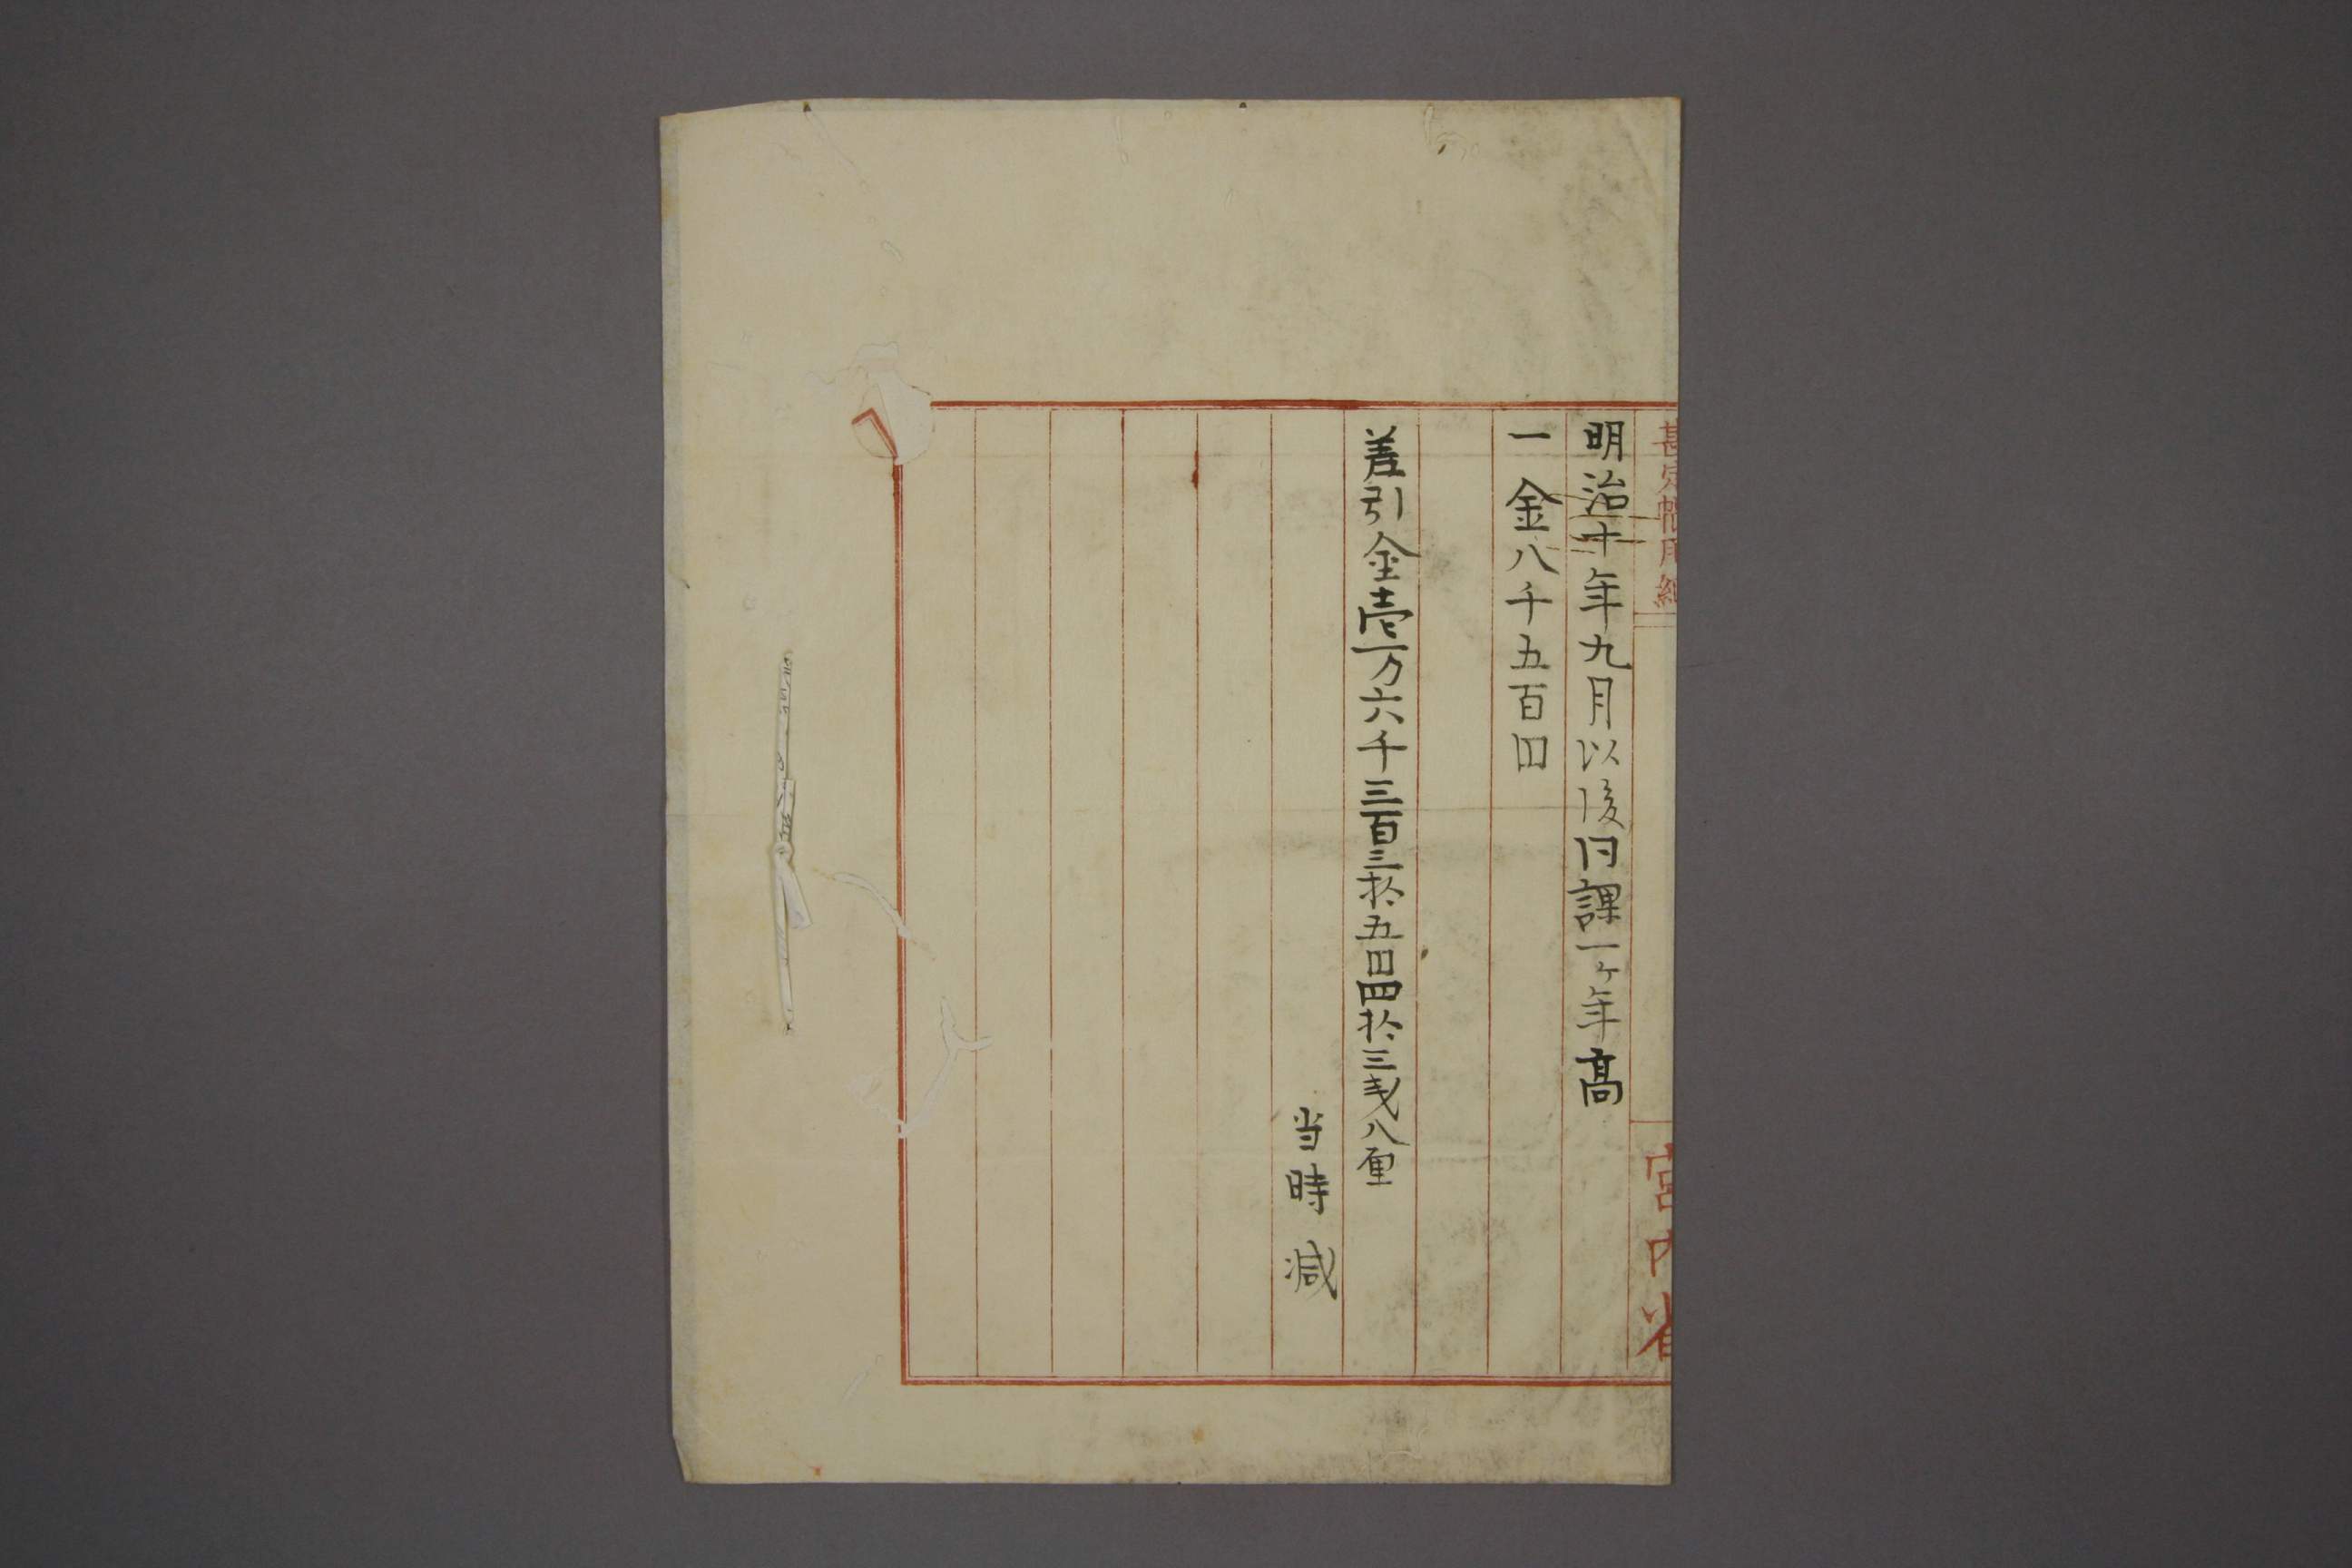 勘定帳用紙
宮内省
明治十年九月以後同課一ヶ年高
一金八千五百円
差引金壱万六千三百三拾五円四拾三銭八厘
当時減